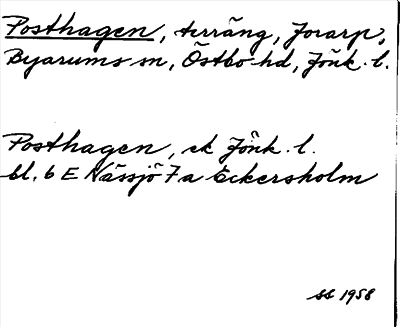 Posthagen, terräng, Jorarp,
Byarums sn, Östbo hd, Jönk. l.
Posthagen, ek Jönk. l.
bl. 6 E Nässjö 7a Eckersholm
SS 1958